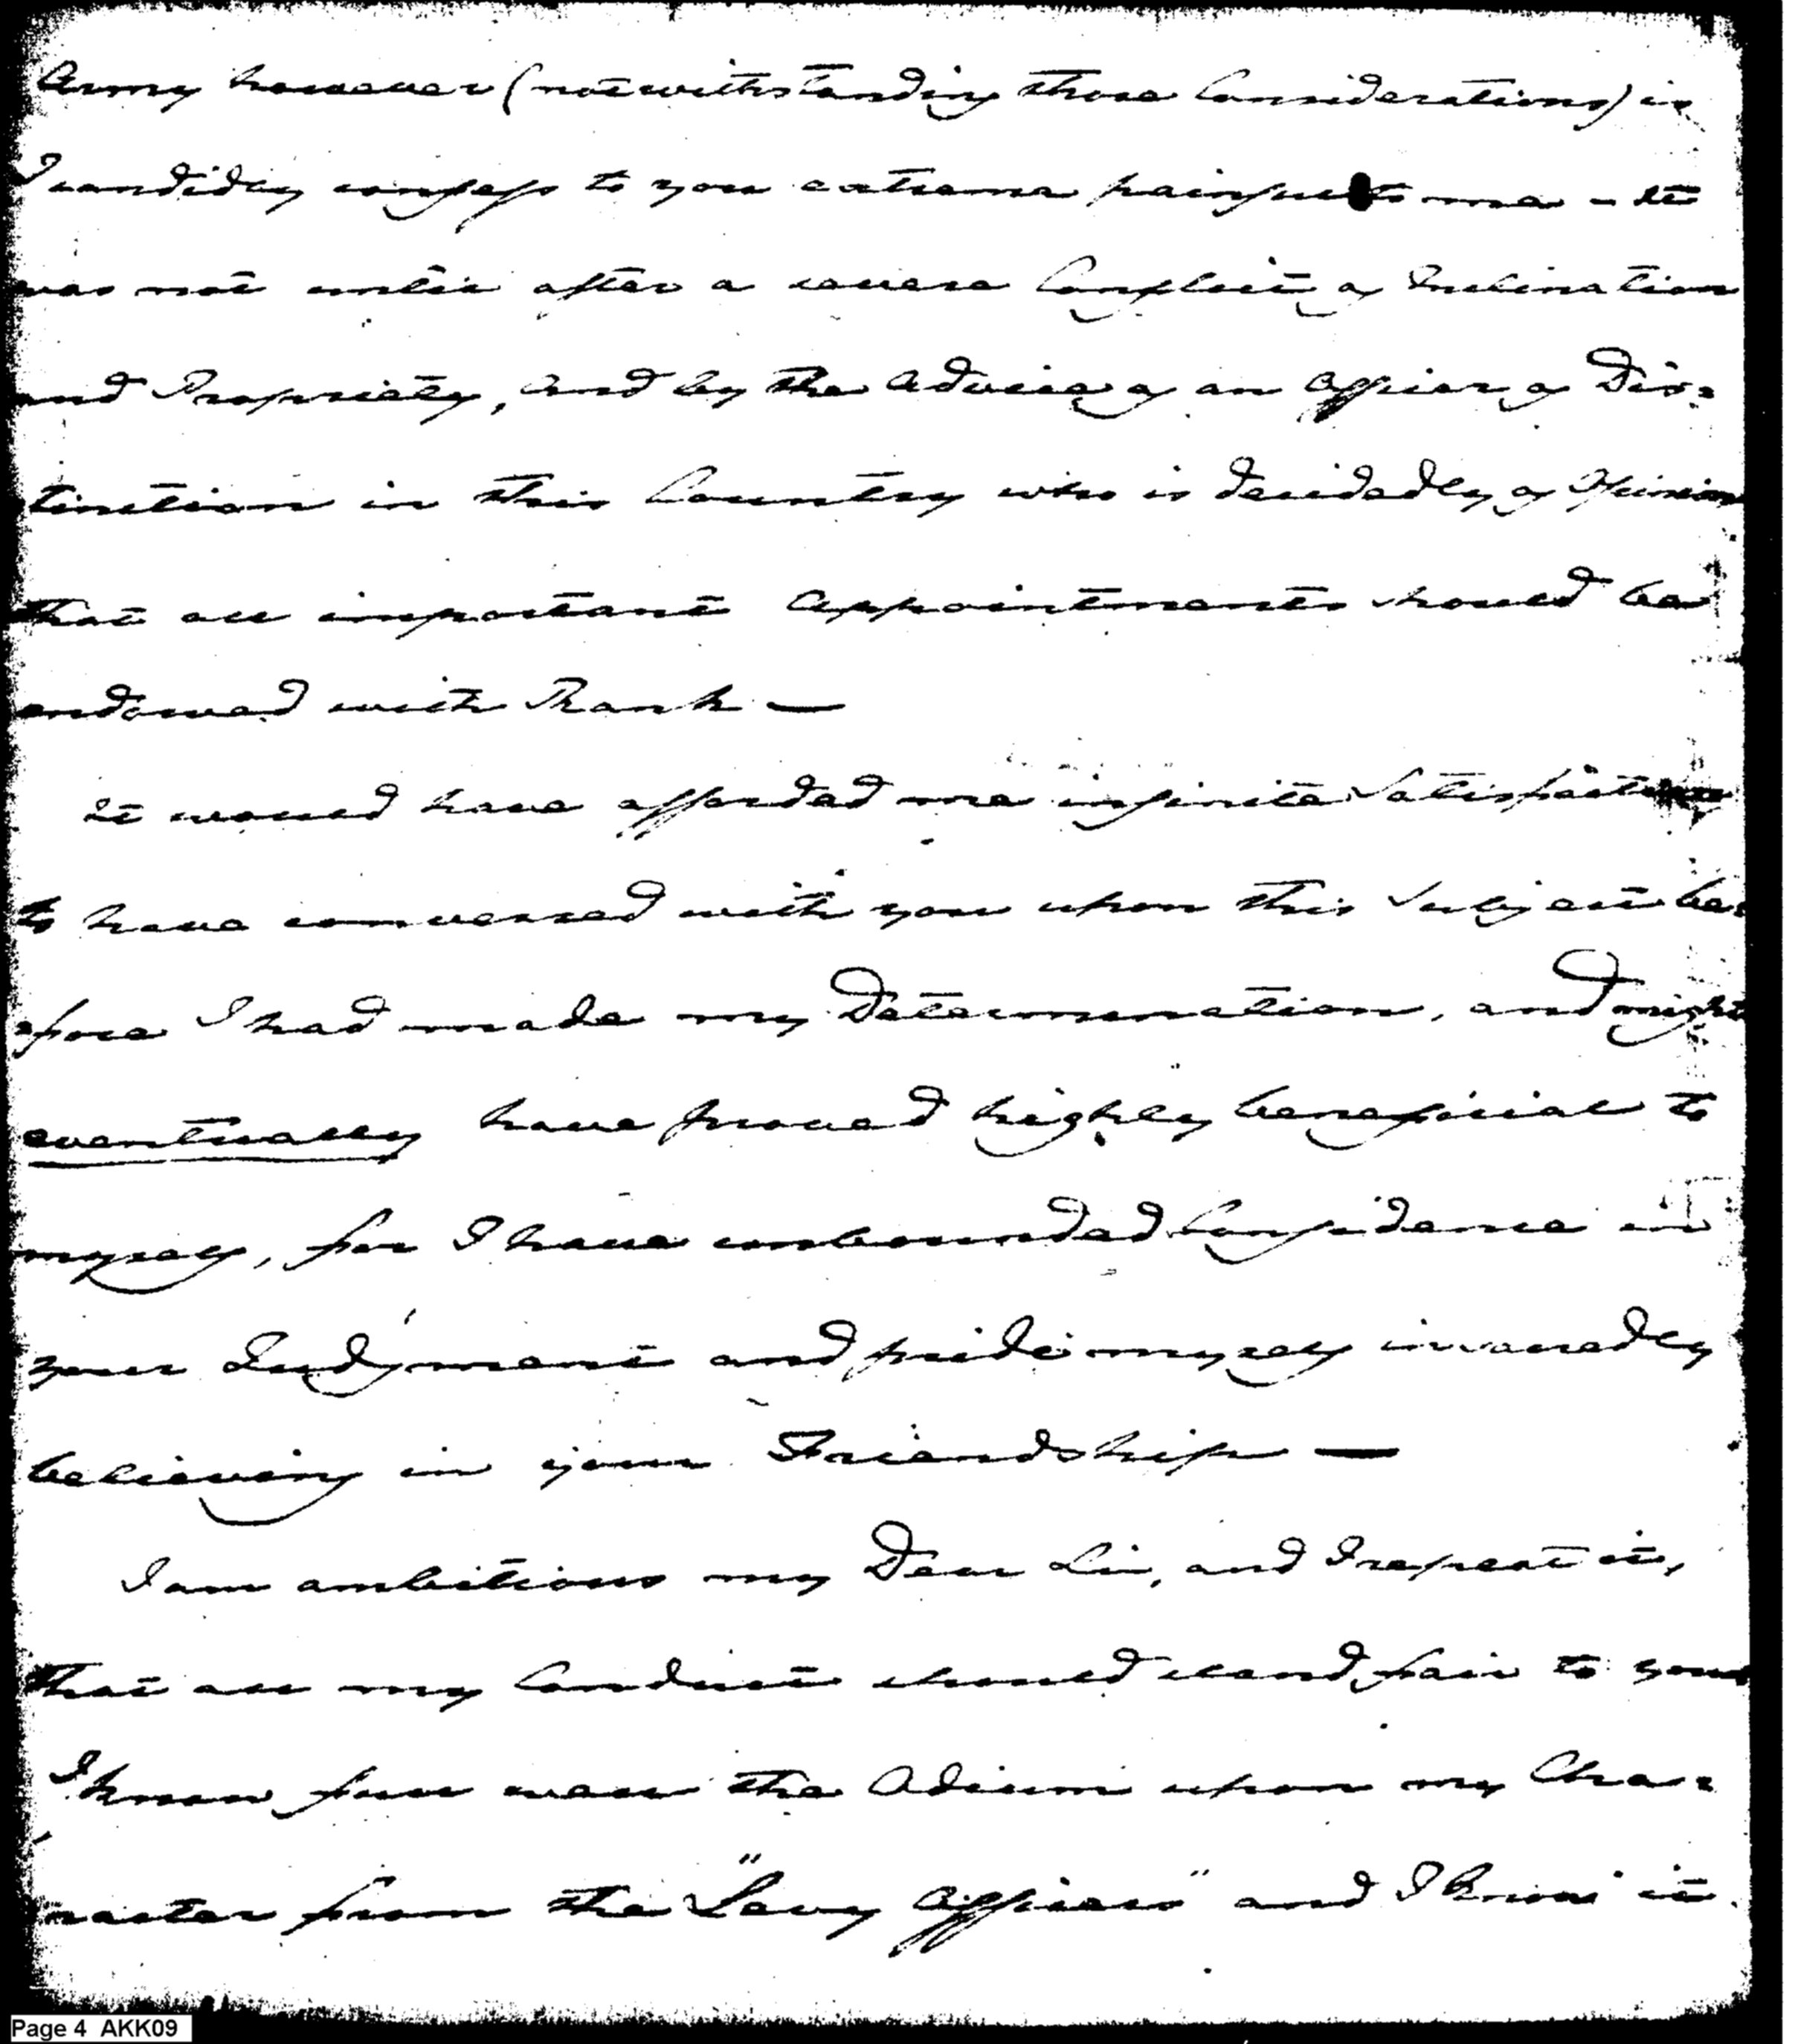 Army however (notwithstanding those Considerations) is
I candidly confess to you extreme painful to me - It
was not until after a severe Conflict of Inclination
and Propriety, And by the Advice of an Officer of Dis=
tinction in this Country who is decidedly of Opinion
that all important Appointments should be
endowed with Rank —
It would have afforded me infinite Satisfaction
to have conversed with you upon this Subject be=
fore I had made my Determination, and might
eventually have proved highly beneficial to
myself, for I have unbounded Confidence in
your Judgment and pride myself inwardly
believing in your Friendship —
I am ambitious my Dear Sir, and I repeat it,
that all my Conduct should stand fair to you
I know full well the Odium upon my Cha=
racter from the "Levy Officers" and I know it
Page 4 AKK09